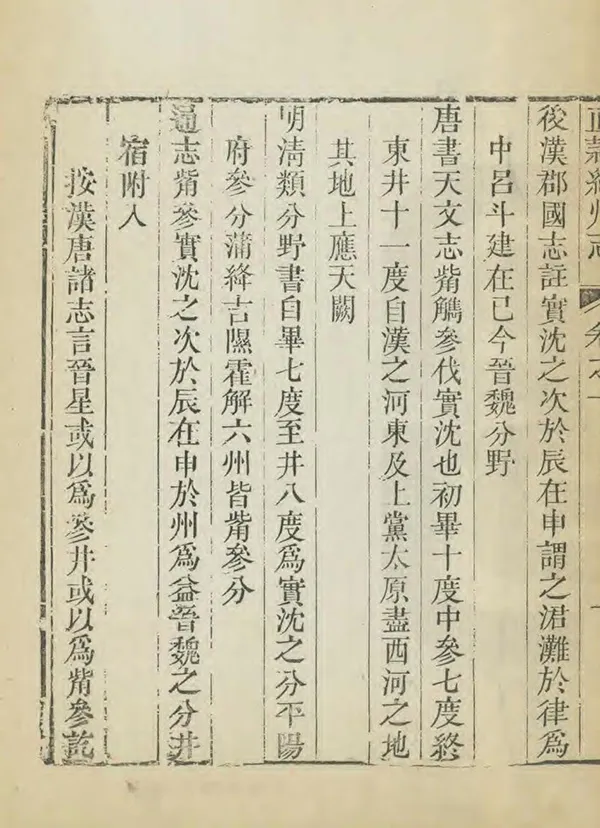 直隸絳州志
卷之一
後漢郡國志註實沈之次於辰在申謂之涒灘於律爲
中呂斗建在巳今晉魏分野
唐書天文志觜觿參伐實沈也初畢十度中參七度終
東井十一度自漢之河東及上黨太原盡西河之地
其地上應天闕
明清類分野書自畢七度至井八度爲實沈之分平陽
府參分蒲絳吉隰霍解六州皆觜參分
通志觜參實沈之次於辰在申於州爲益晉魏之分井
宿附入
按漢唐諸志言晉星或以爲參井或以爲觜參訖